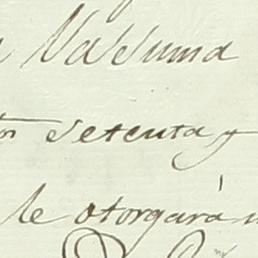 la Suma
setenta y
le otorgará